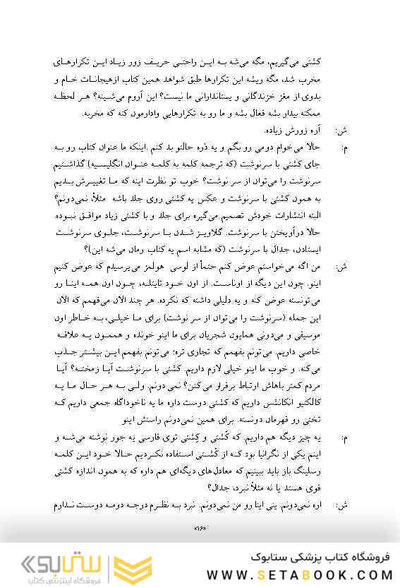 کشتی می‌گیریم، مگه می‌شه به این راحتی حریف زور زیاد این تکرارهای
مخرب شد، مگه ریشه این تکرارها طبق شواهد همین کتاب ازهیجانات خام و
بدوی از مغز خزندگانی و پستاندارانی ما نیست؟ این آروم می‌شینه؟ هر لحظه
ممکنه بیدار بشه فعال بشه و ما رو به تکرارهایی وادارمون کنه که مخربه.
ش: آره زورش زیاده.
م: حالا می‌خوام دومی رو بگم و یه ذره حالتو بد کنم. اینکه ما عنوان کتاب رو به
جای کشتی با سرنوشت (که ترجمه کلمه به کلمه عنوان انگلیسیه) گذاشتیم
سرنوشت را می‌توان از سر نوشت؟ خوب تو نظرت اینه که ما تغییرش بدیم
به همون کشتی با سرنوشت و عکس یه کشتی روی جلد باشه مثلاً، نمی‌دونم؟
البته انتشارات خودش تصمیم می‌گیره برای جلد و با کشتی زیاد موافق نبوده
حالا درآویختن با سرنوشت، گلاویز شدن با سرنوشت، جلوی سرنوشت
ایستادن، جدال با سرنوشت (که مشابه اسم یه کتاب رمان می‌شه این)؟
ش: من اگه می‌خواستم عوض کنم حتماً از لوسی هولمز می‌پرسیدم که عوض کنیم
اینو، چون این دیگه از اوناست. از اون خود تایتله، چون اون همه اینا رو
می‌تونسته عوض کنه و یه دلیلی داشته که نکرده. هر چند الان می‌فهمم که الان
این جمله (سرنوشت را می‌توان از سر نوشت) برای ما خیلی، به خاطر اون
موسیقی و می‌دونی همایون شجریان برای ما اینو خونده و هممون یه علاقه
خاصی داریم. می‌تونم بفهمم که تجاری تره؛ می‌تونم بفهمم این بیشتر جذب
می‌کنه. و خوب ما اینو خیلی لازم داریم. کشتی با سرنوشت آیا زمخته؟ آیا
مردم کمتر باهاش ارتباط برقرار می‌کنن؟ نمی‌دونم. ولی به هر حال ما یه
کالکتیو آنکانشس داریم که کشتی دوست داره ما یه ناخودآگاه جمعی داریم که
تختی رو قهرمان دونسته. برای همین نمی‌دونم راستش اینو
م: یه چیز دیگه هم داریم که کُشتی و کِشتی توی فارسی یه جور نوشته می‌شه و
اینم یکی از نگرانیا بود که از کُشتی استفاده نکردیم حالا خود این کلمه
رسلینگ باز باید ببینیم که معادل‌های دیگه‌ای هم داره که به همون اندازه کشتی
قوی هستند یا نه مثلاً نبرد، جدال؟
ش: آره نمی‌دونم. ینی اینا رو من نمی‌دونم. نبرد به نظرم درجه دومه دوست ندارم
«۱۶»
فروشگاه کتاب پزشکی ستابوک
WWW.SETABOOK.COM
ستابوک
فروشگاه اینترنتی کتاب